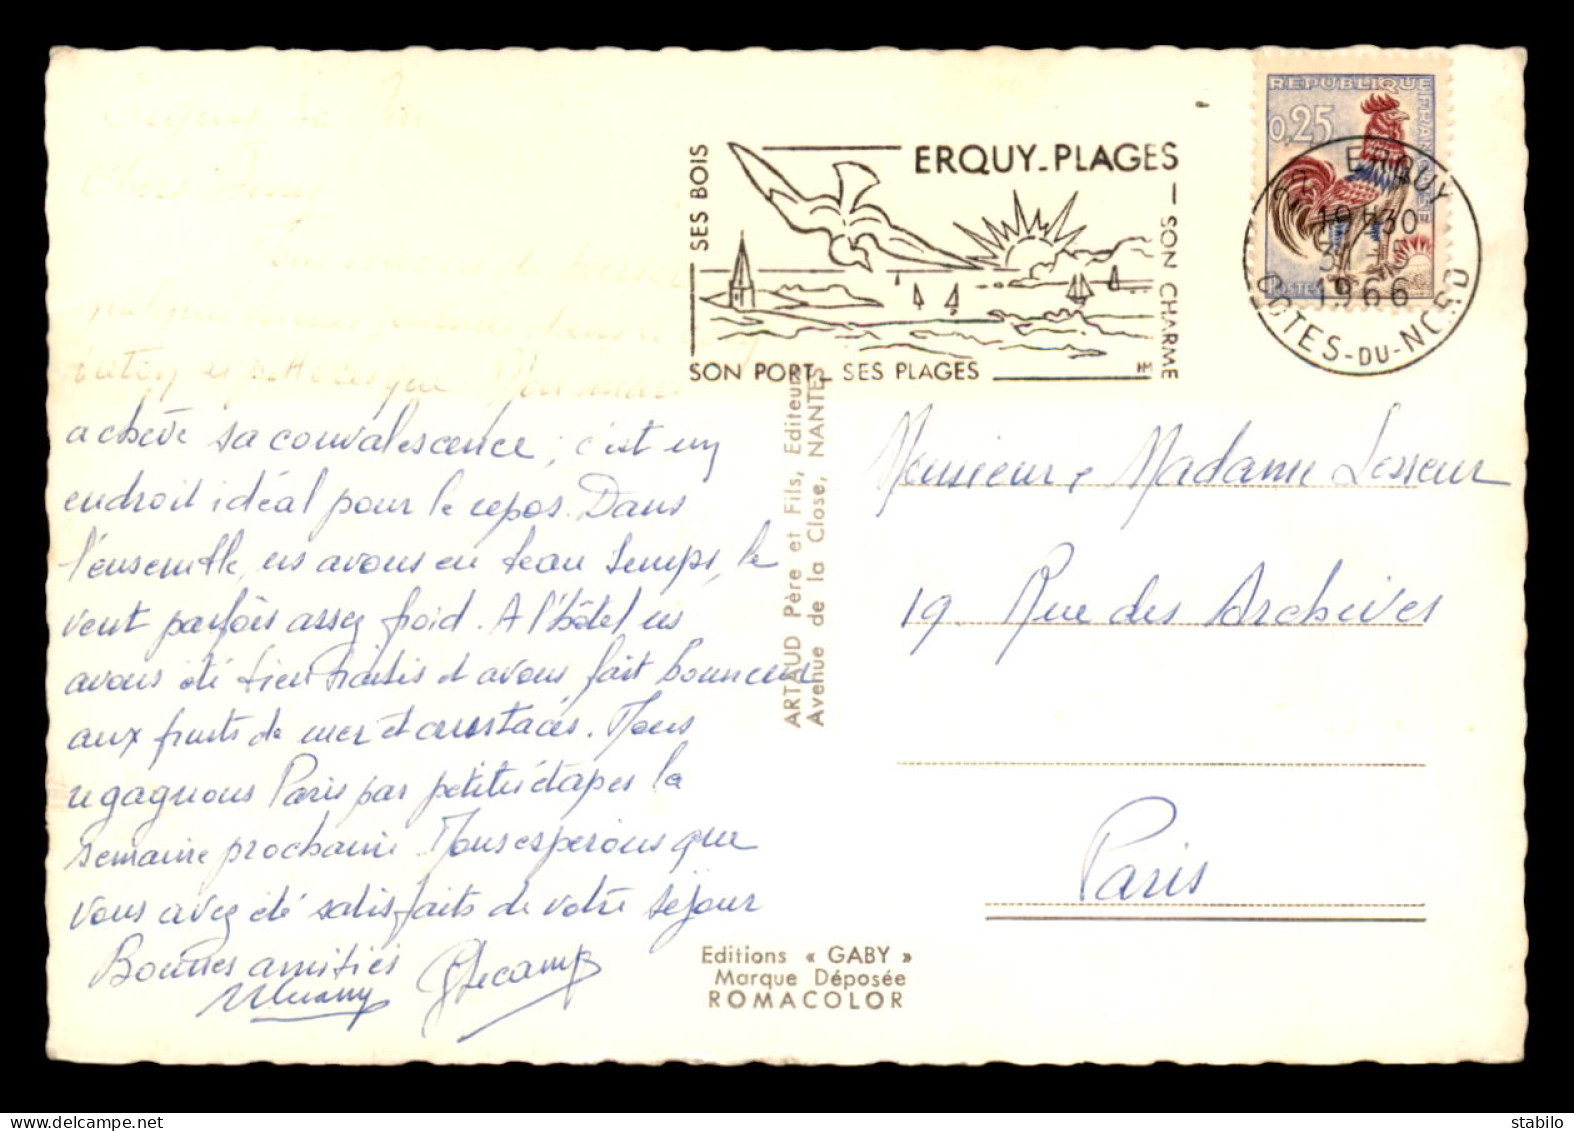 Chers Amis
achève sa convalescence, c'est un
endroit idéal pour le repos. Dans
l'ensemble, ns avons eu beau temps, le
vent parfois assez froid. A l'hôtel ns
avons été bien traités et avons fait bonneur
aux fruits de mer et crustacés. Nous
regagnons Paris par petites étapes la
semaine prochaine. Nous espérons que
vous avez été satisfaits de votre séjour
Bonnes amitiés
ERQUY_PLAGES
SES BOIS
SON CHARME
SON PORT_ SES PLAGES
REPUBLIQUE FRANÇAISE
0,25
POSTES
ERQUY
19H30
1966
COTES-DU-NORD
ARTAUD Père et Fils, Editeurs
Avenue de la Close, NANTES
Monsieur & Madame Lesseur
19 Rue des Archives
Paris
Editions « GABY »
Marque Déposée
ROMACOLOR
delcampe.net
stabilo